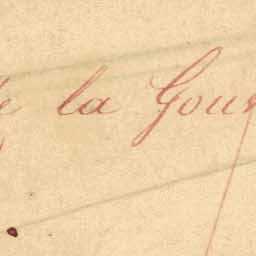 de la Gour